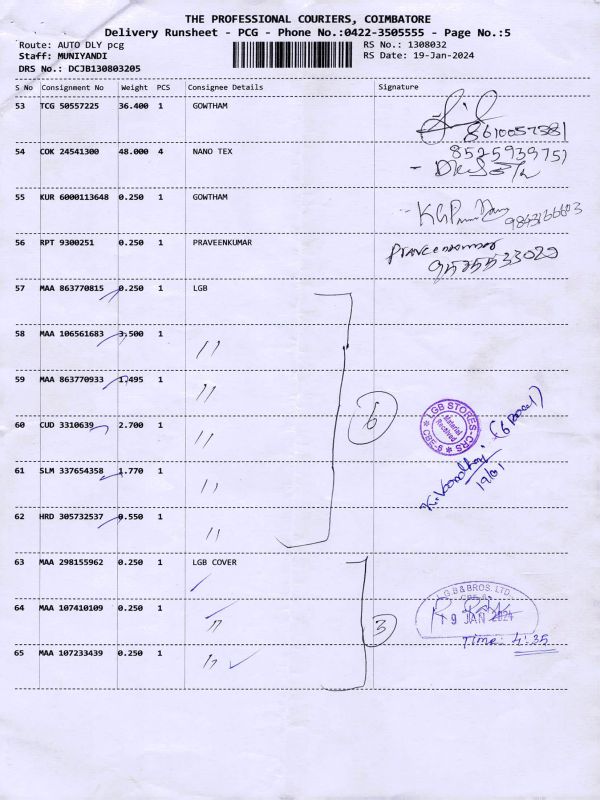 THE PROFESSIONAL COURIERS, COIMBATORE
Delivery Runsheet - PCG - Phone No.:0422-3505555 - Page No.:5
Route: AUTO DLY pcg
Staff: MUNIYANDI
DRS No.: DCJB130803205
RS No.: 1308032
RS Date: 19-Jan-2024
S No Consignment No Weight PCS Consignee Details Signature
53 TCG 50557225 36.400 1 GOWTHAM
8610057581
54 COK 24541300 48.000 4 NANO TEX
8525939751
55 KUR 6000113648 0.250 1 GOWTHAM
9843166603
56 RPT 9300251 0.250 1 PRAVEENKUMAR
Praveenkumar
9525533029
57 MAA 863770815 0.250 1 LGB
58 MAA 106561683 3.500 1 "
59 MAA 863770933 1.495 1 "
60 CUD 3310639 2.700 1 "
61 SLM 337654358 1.770 1 "
62 HRD 305732537 0.550 1 "
6
LGB STORES-CRS
Material Received
CBE-6
(6 Parcel)
19/01
63 MAA 298155962 0.250 1 LGB COVER
64 MAA 107410109 0.250 1 "
65 MAA 107233439 0.250 1 "
3
L.G.B & BROS. LTD.
19 JAN 2024
Time: 4:35